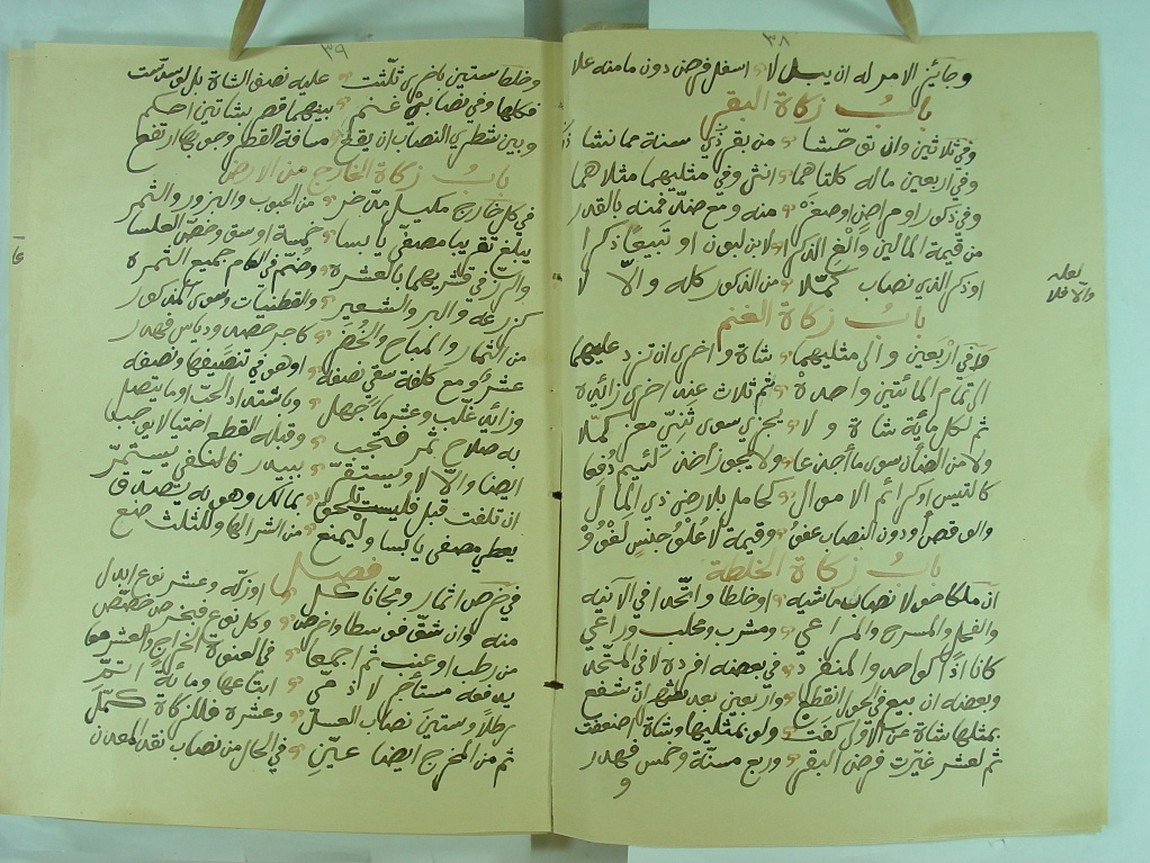 ٣٨
وجائز الامر له ان يبدلا اسفل فرض دون ما منه علا
باب زكاة البقر
وفي ثلاثين وان توحشا من بقر ذي سنة مما نشا
وفي اربعين ماله كلتاهما انثى وفي مثليهما مثلاهما
وفي ذكور او مراض او صغر منه ومع ضد فمنه بالقدر
من قيمة المالين والغ الذكرا لابن لبون او تبيعا ذكرا
او ذكر الذي نصاب كملا من الذكور كله والا لا
لعله والا فلا
باب زكاة الغنم
وفي اربعين والى مثليهما شاة واخرى ان تزد عليهما
الى تمام المائتين واحدة ثم ثلاث عند اخرى زائدة
ثم لكل مأية شاة ولا يجزي سوى ثني معز كملا
ولا من الضأن سوى ما أجذعا ولا يجوز أخذ لئيم دفعا
كالتيس او كرائم الاموال كحامل بلا رضى ذي المال
والوقص أو دون النصاب عفو وقيمة لأعلى جنس لغو
باب زكاة الخلطة
ان ملكا حولا نصاب ماشيه او خلطا واتحدا في الآنيه
والفحل والمسرح والمراعي ومشرب ومحلب وراعي
كانا اذا كواحد والمنفرد في بعضه افرده لا في المتحد
وبعضه ان بيع في الحول انقطع واربعين بعد ان شفع
بمثلها شاة عن الاولى كفت ولو بمثليها وشاة ضعفت
ثم لعشر غيرت فرض البقر وربع مسنة وخمس فهدر
و
٣٩
وخلطا ستين باخرى ثلثت عليه نصف الشاة بل لو سدست
فكلها وفي نصابي غنم بينهما قصر بشاتين احكم
وبين شطري النصاب ان يقع مسافة القطر وجوبها ارتفع
باب زكاة الخارج من الارض
في كل خارج مكيل مدخر من الحبوب والبزور والثمر
يبلغ تقريبا مصفى يابسا خمسة اوسق وخص العلسا
والرز في قشريهما بالعشرة وضم في العام جميع الثمرة
كزرعه والبر والشعير والقطنيات وسوى المذكور
من الثمار والمباح والخضر كاجر حصد ودياس فهدر
عشر ومع كلفة سقي نصفه او هو في تنصيفها ونصفه
وزائد غلب وعشر ما جهل وباشتداد الحب او ما يتصل
به صلاح ثمر فتجب وقبله القطع احتيالا يوجب
ايضا والا لا ويستقر ببيدر فالنفي يستمر
ان تلفت قبل فليست تلحق بمالك وهو له يصدق
يعطي مصفى يابسا وليمنع من الشرا لها وللثلث ضع
فصل
في خرص اثمار ومجانا كل ما او زكه وعشر نوع ابدل
منه وان شق فوسطا واخرص وكل نوع فبخرص خصص
من رطب او عنب ثم اجمعا في العنوة الخراج والعشر معا
يدفعه مستأجر لا ذمي ابتاعها ومائة اتم
رطلا وستين نصاب العسل وعشره فللزكاة كمل
ثم من المخرج ايضا عين في الحال من نصاب نقد المعدن